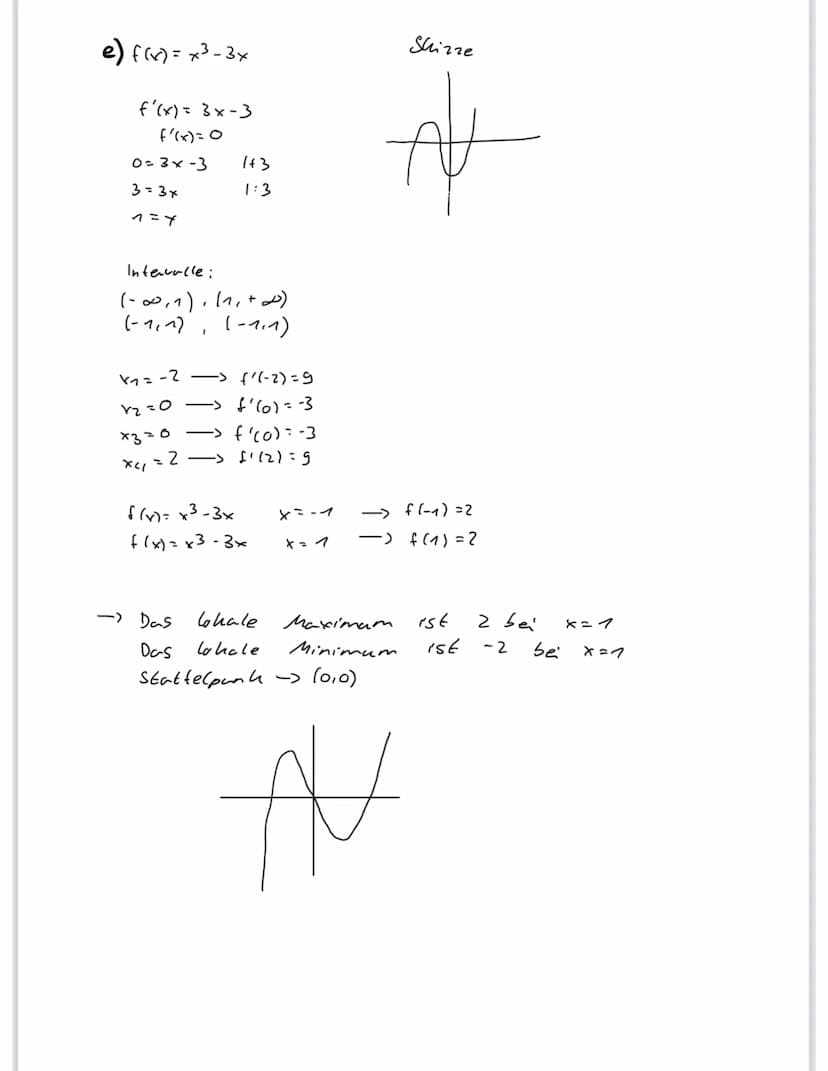 e) f(x) = x³ - 3x
Skizze
f'(x) = 3x - 3
f'(x) = 0
0 = 3x - 3 |+3
3 = 3x |:3
1 = x
Intervalle:
(-∞,1), (1,+∞)
(-1,1), (-1,1)
x1 = -2 → f'(-2) = 9
x2 = 0 → f'(0) = -3
x3 = 0 → f'(0) = -3
x4 = 2 → f'(2) = 9
f(x) = x³ - 3x x = -1 → f(-1) = 2
f(x) = x³ - 3x x = 1 → f(1) = 2
→ Das lokale Maximum ist 2 bei x = 1
Das lokale Minimum ist -2 bei x = 1
Stattelpunk → (0,0)